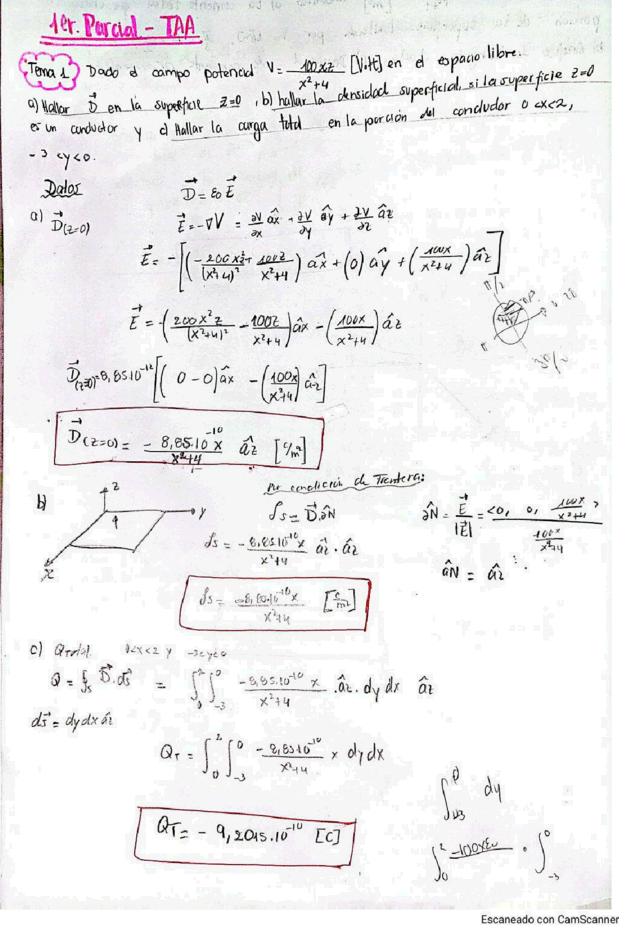 1er. Parcial - TAA
Tema 1 Dado el campo potencial V = 100xz / x²+4 [Volt] en el espacio libre.
a) Hallar D⃗ en la superficie z=0, b) hallar la densidad superficial, si la superficie z=0
es un conductor y c) Hallar la carga total en la porción del conductor 0<x<2,
-3<y<0.
Datos
D⃗ = ε0 E⃗
a) D⃗(z=0) E⃗ = -∇V = ∂V/∂x âx + ∂V/∂y ây + ∂V/∂z âz
E⃗ = -[(-200x²z/(x²+4)² + 100z/x²+4) âx + (0) ây + (100x/x²+4) âz]
E⃗ = (200x²z/(x²+4)² - 100z/x²+4) âx - (100x/x²+4) âz
D⃗(z=0) = 8,85.10⁻¹² [(0-0) âx - (100x/x²+4) âz]
D⃗(z=0) = -8,85.10⁻¹⁰x / x²+4 âz [C/m²]
Por condición de frontera:
b) z y x
ρs = D⃗.âN
âN = E⃗/|E⃗| = <0, 0, 100x/x²+4> / 100x/x²+4
ρs = -8,85.10⁻¹⁰x / x²+4 âz . âz
âN = âz
ρs = -8,85.10⁻¹⁰x / x²+4 [C/m²]
c) Qtotal 0<x<2 y -3<y<0
Q = ∫s D⃗.ds⃗ = ∫₀² ∫₋₃⁰ -8,85.10⁻¹⁰ x / x²+4 . âz . dy dx âz
ds⃗ = dy dx âz
QT = ∫₀² ∫₋₃⁰ -8,85.10⁻¹⁰ / x²+4 x dy dx
dy
QT = -9,2015.10⁻¹⁰ [C]
∫₀² -100xε0 . ∫₋₃⁰
Escaneado con CamScanner